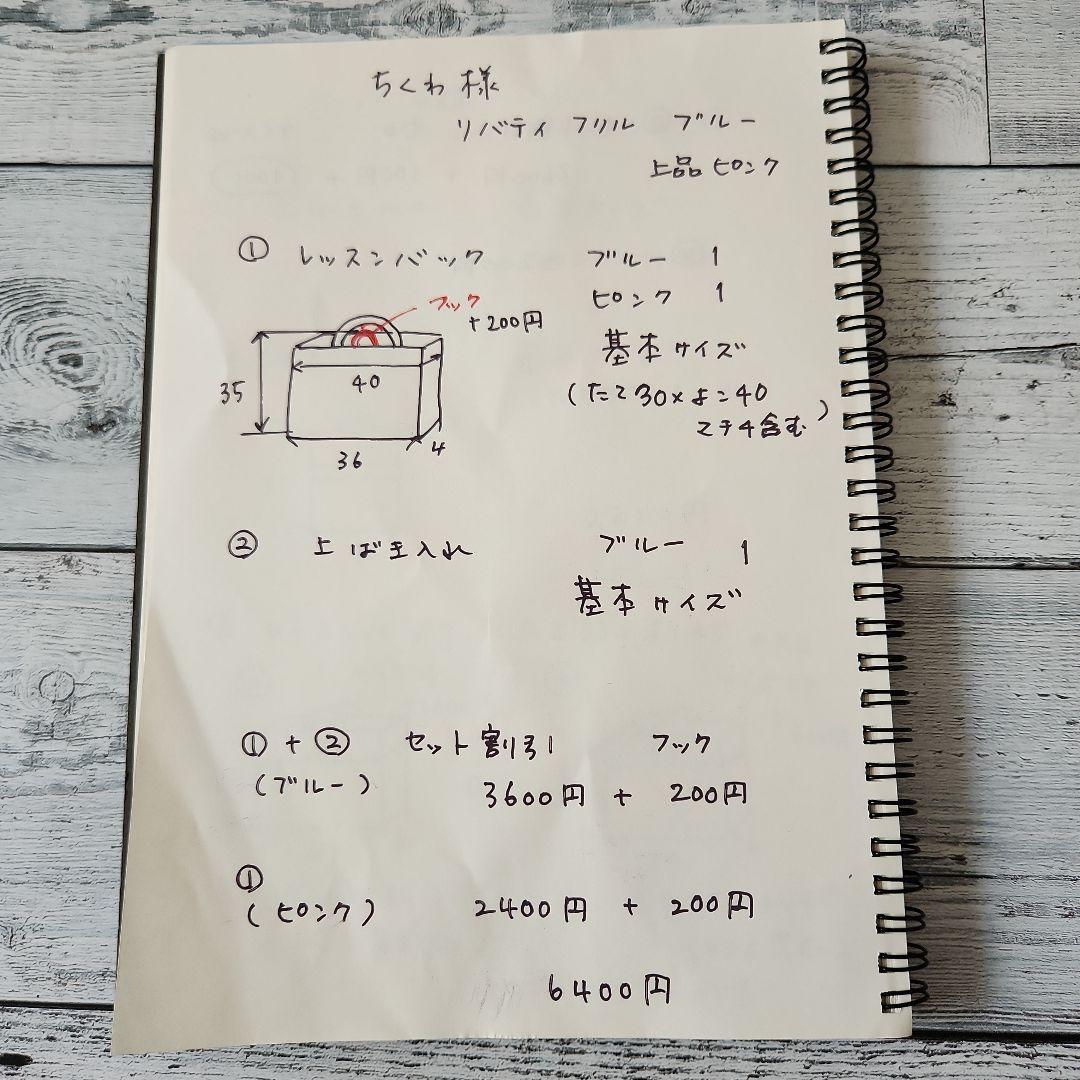 ちくわ様
リバティ フリル ブルー
上品ピンク
① レッスンバック ブルー 1
ピンク 1
フック
+200円
基本サイズ
(たて30×よこ40
マチ4含む)
35
40
36
4
② 上ばき入れ ブルー 1
基本サイズ
①+② セット割引 フック
(ブルー) 3600円 + 200円
①
(ピンク) 2400円 + 200円
6400円